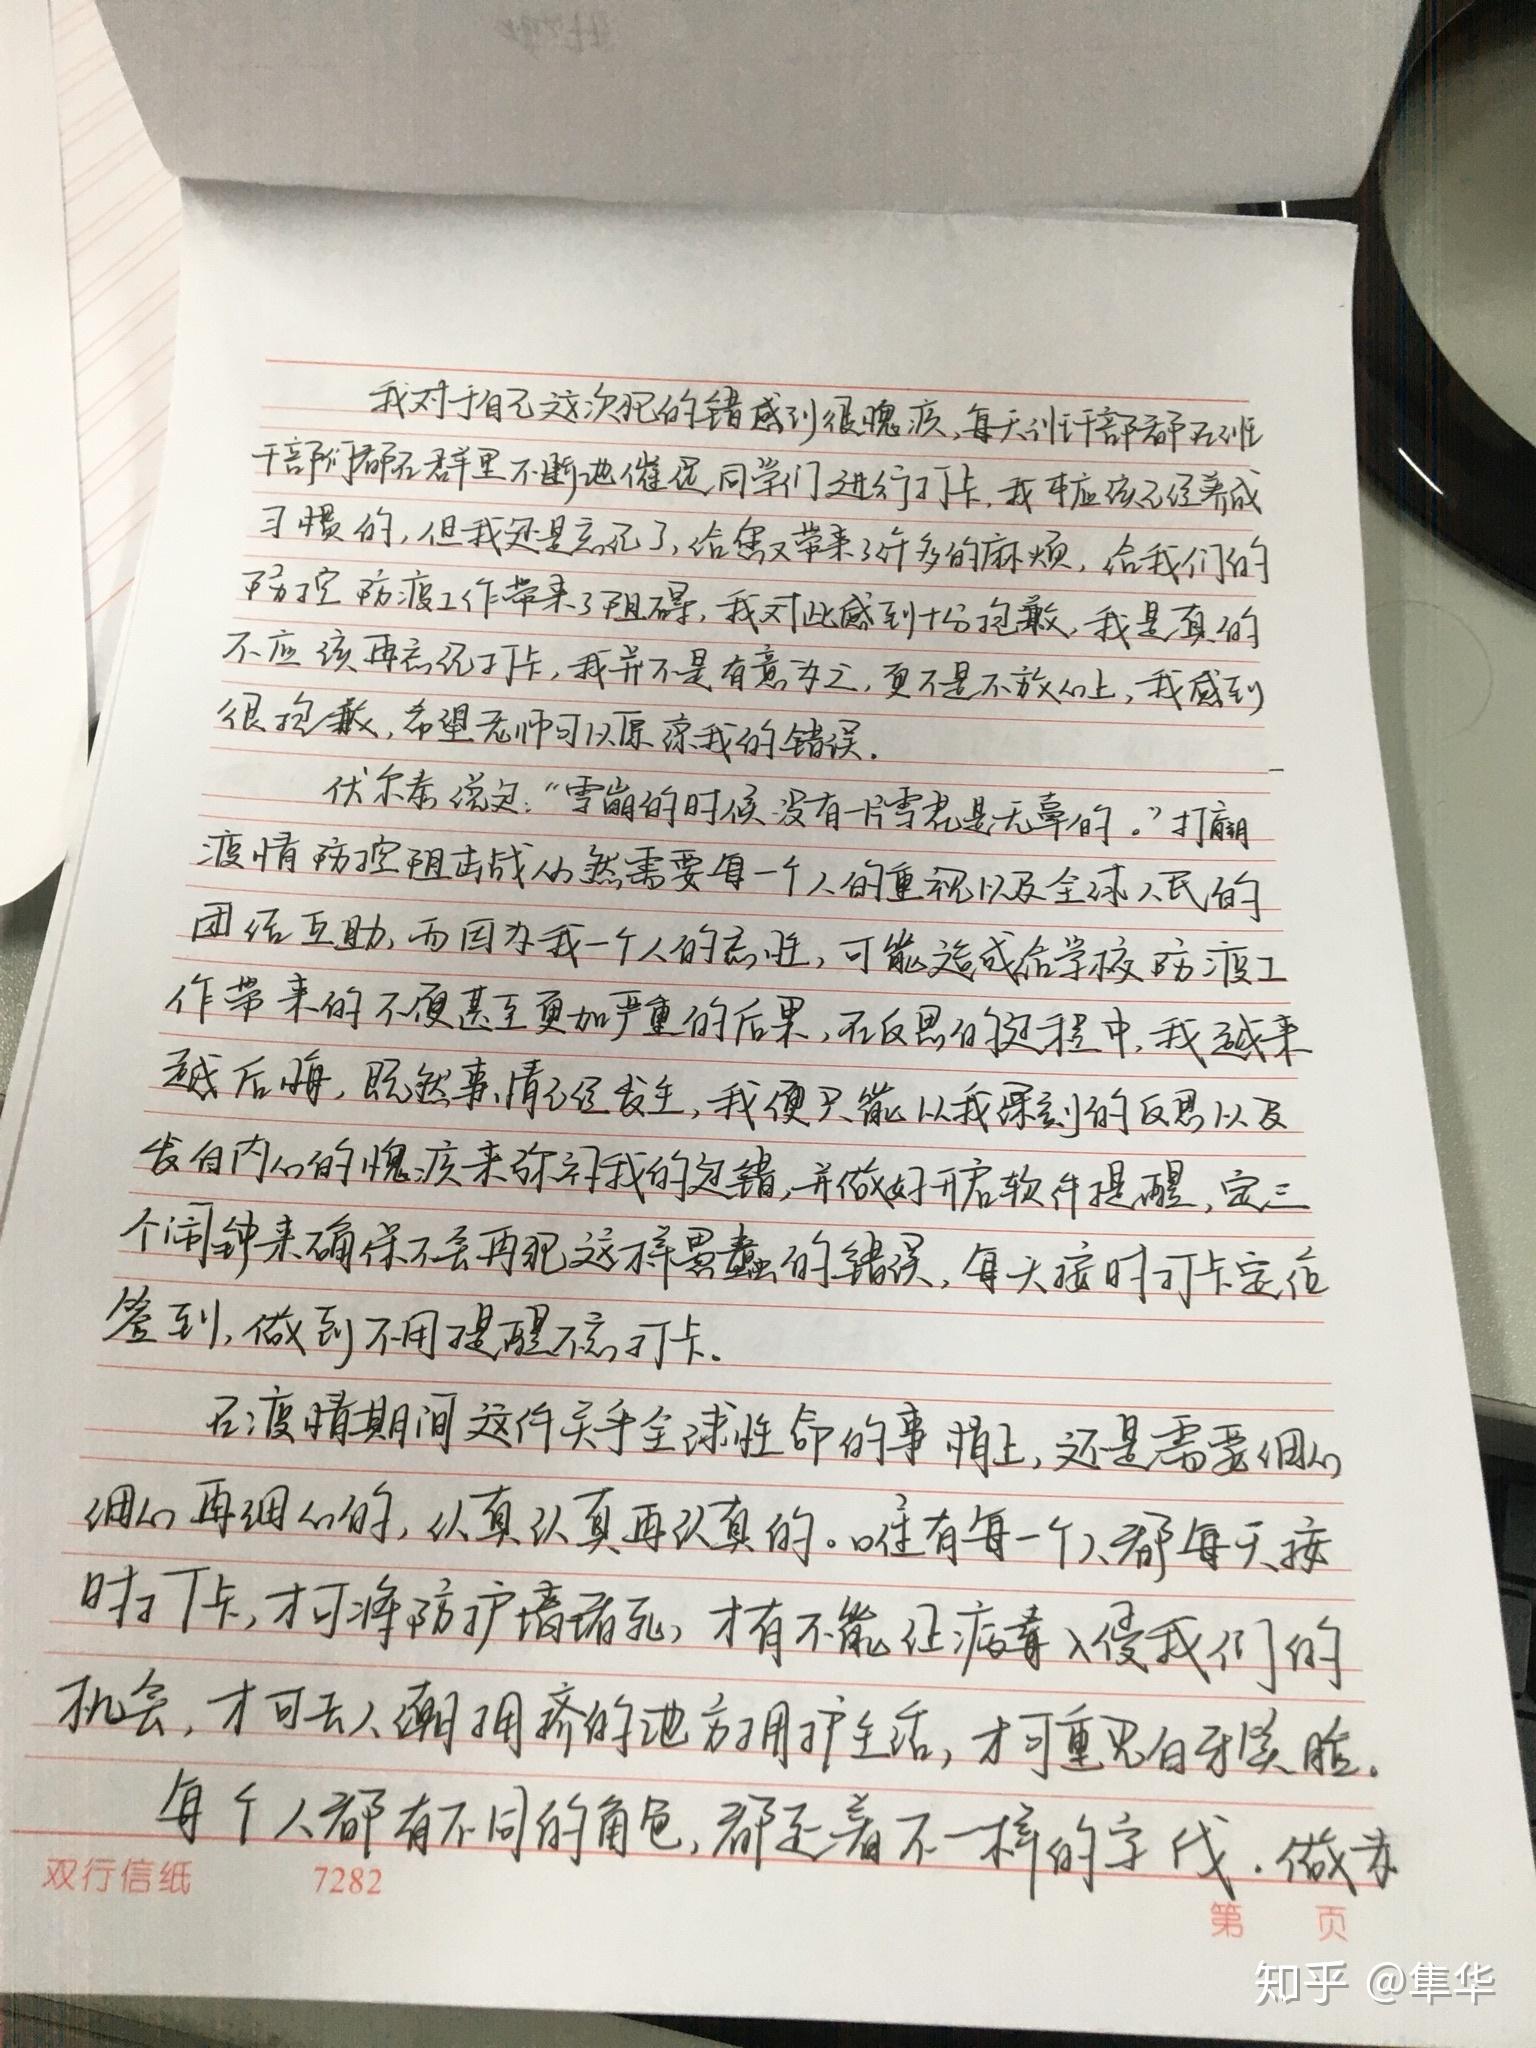 我对于自己这次犯的错感到很愧疚,每天班干部都在班
干部们都在群里不断地催促同学们进行打卡,我本应该已经养成
习惯的,但我还是忘记了,给您又带来了许多的麻烦,给我们的
防控防疫工作带来了阻碍,我对此感到十分抱歉,我是真的
不应该再忘记打卡,我并不是有意为之,更不是不放心上,我感到
很抱歉,希望老师可以原谅我的错误.
伏尔泰说过:“雪崩的时候没有一片雪花是无辜的。”打赢
疫情防控阻击战仍然需要每一个人的重视以及全球人民的
团结互助,而因为我一个人的忘性,可能造成给学校防疫工
作带来的不便甚至更加严重的后果,在反思的过程中,我越来
越后悔,既然事情已经发生,我便只能以我深刻的反思以及
发自内心的愧疚来弥补我的过错,并做好开启软件提醒,定三
个闹钟来确保不会再犯这样愚蠢的错误,每天按时打卡定位
签到,做到不用提醒不忘打卡.
在疫情期间这件关乎全球性命的事情上,还是需要细心
细心再细心的,认真认真再认真的。唯有每一个人都每天按
时打卡,才可将防护墙堵死,才有不能让病毒入侵我们的
机会,才可去人潮拥挤的地方拥护生活,才可重见白牙笑脸.
每个人都有不同的角色,都还着不一样的字代.做为
双行信纸 7282
第 页
知乎 @隼华